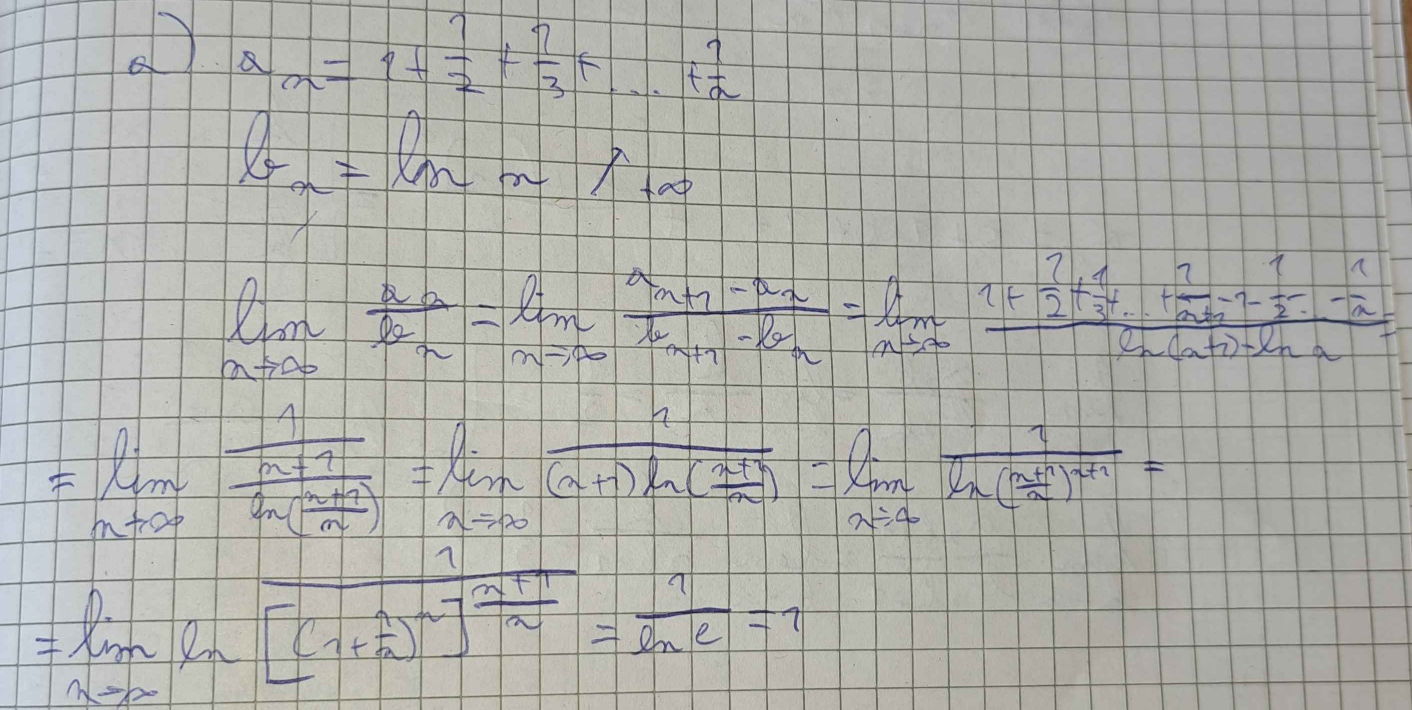 a) a_n = 1 + 1/2 + 1/3 + ... + 1/n
b_n = ln n ↗ +∞
lim_{n→∞} a_n/b_n = lim_{n→∞} (a_{n+1} - a_n)/(b_{n+1} - b_n) = lim_{n→∞} (1 + 1/2 + 1/3 + ... + 1/(n+1) - 1 - 1/2 - ... - 1/n)/(ln(n+1) - ln n) =
= lim_{n→∞} (1/(n+1))/(ln((n+1)/n)) = lim_{n→∞} 1/((n+1) ln((n+1)/n)) = lim_{n→∞} 1/(ln((n+1)/n)^{n+1}) =
= lim_{n→∞} 1/(ln[(1 + 1/n)^n]^{(n+1)/n}) = 1/(ln e) = 1